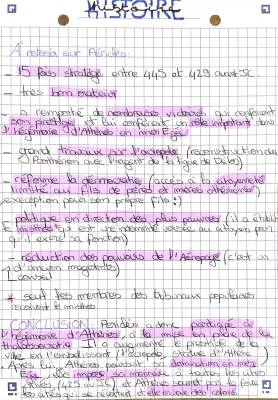 HISTOIRE
A retenir sur Périclès
- 15 fois stratège entre 445 et 429 avant JC.
- très bon orateur
- a remporté de nombreuses victoires qui renforcent
son prestige et lui confèrent un rôle important dans
l'hégémonie d'Athènes en mer Egée
- grand travaux sur l'acropole (reconstruction du
Parthénon avec l'argent de la ligue de Délos)
- réforme la démocratie (accès à la citoyenneté
limité au fils de pères et mères athéniens)
exception pour son propre fils :)
- politique en direction des plus pauvres (il a établi
le misthos qui est une indemnité versée au citoyen pour
qu'il exerce sa fonction)
- réduction des pouvoirs de l'Aéropage (c'est un
conseil d'anciens magistrats)
* seul les membres des tribunaux populaires
reçoivent le misthos
CONCLUSION: Périclès a donc participé à
l'hégémonie d'Athènes, à la mise en place de la
thalassocratie. Il a augmenté le prestige de la
ville en l'embellissant (l'acropole, statue d'Athéna)
Après lui, Athènes poursuit sa domination en mer
Egée, elle impose sa monnaie à toutes les autres
cités (425 av JC) et Athènes soumet par la force
les cités qui se révoltent et elle envoie des colons.